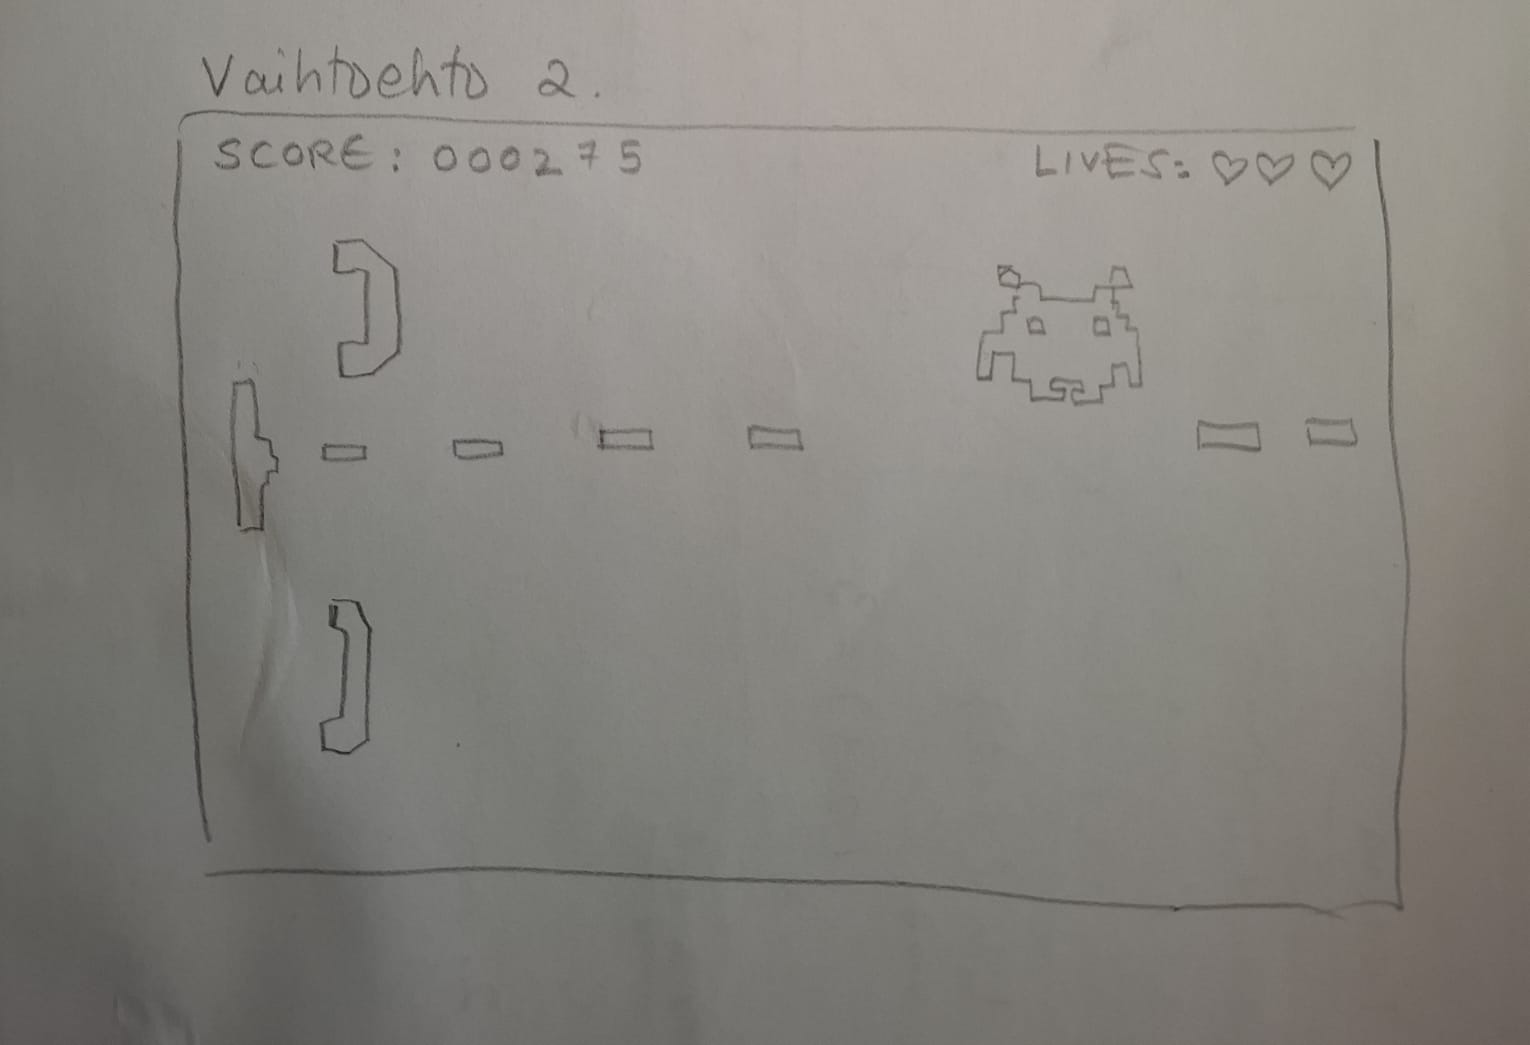 Vaihtoehto 2.
SCORE: 000275
LIVES: ♡♡♡